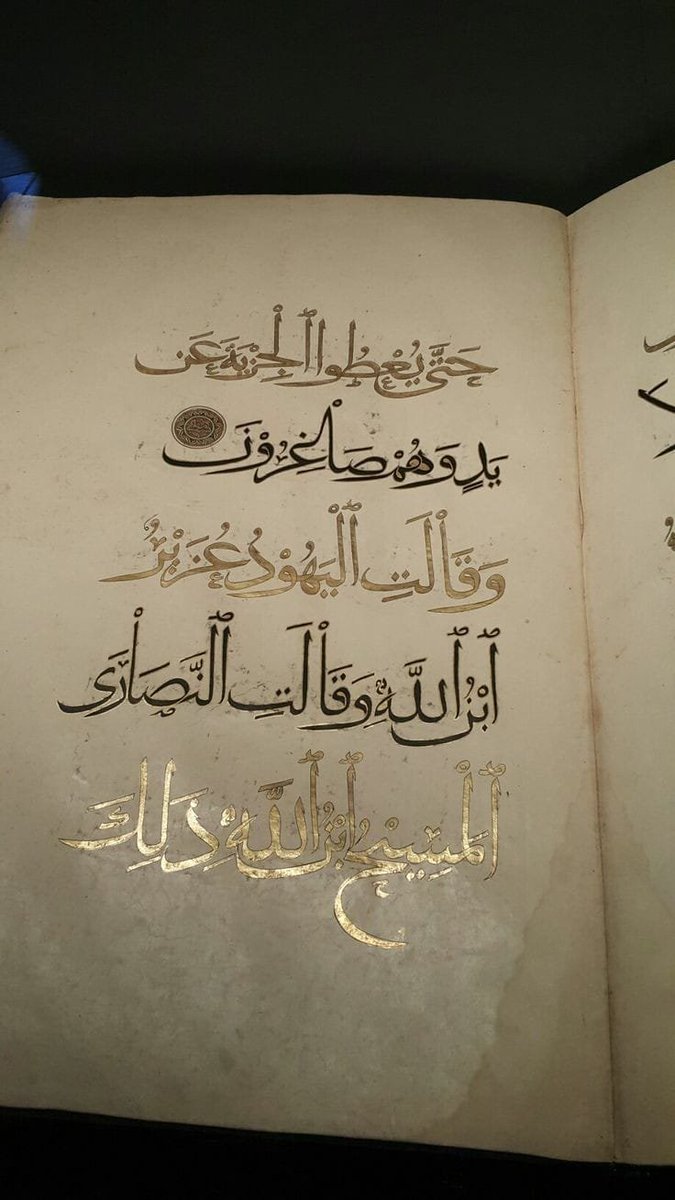 حَتَّىٰ يُعْطُوا ٱلْجِزْيَةَ عَن
يَدٍ وَهُمْ صَاغِرُونَ
وَقَالَتِ ٱلْيَهُوْدُ عُزَيْرٌ
ٱبْنُ ٱللَّهِ وَقَالَتِ ٱلنَّصَارَى
ٱلْمَسِيْحُ ٱبْنُ ٱللَّهِ ذَلِكَ